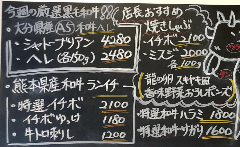 今週の厳選黒毛和牛
大分県産(A5)和牛ヘレ
・シャトーブリアン 4280
・ヘレ(各150g) 2480
熊本県産和牛ランイチ
・特選イチボ 2100
・イチボゆっけ 1180
・牛トロ刺し 1200
店長おすすめ
焼きしゃぶ
・イチボ 2100
・ミスジ 2000
各100g
龍の卵 スキヤキ風
香味野菜おろしポンズ
特選和牛ハラミ 1800
特選和牛サガリ 1600